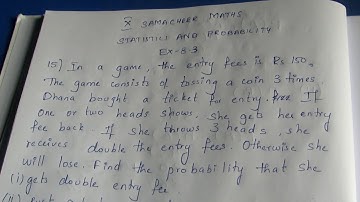 X SAMACHEER MATHS
STATISTICS AND PROBABILITY
EX-8.3
15) In a game, the entry fees is Rs 150,
The game consists of tossing a coin 3 times
Dhana bought a ticket for entry. If
one or two heads shows, she gets her entry
fee back. If she throws 3 heads, she
receives double the entry fees. Otherwise she
will lose. Find the probability that she
(i) gets double entry fee